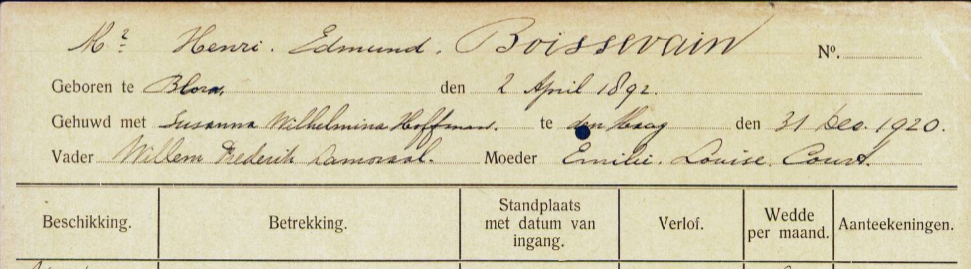 Mr Henri. Edmund. Boissevain No.
Geboren te Blora. den 2 April 1892.
Gehuwd met Susanna Wilhelmina Hoffman. te den Haag den 31 Dec. 1920.
Vader Willem Frederik Lamoraal. Moeder Emilie. Louise. Court.
Beschikking. Betrekking. Standplaats met datum van ingang. Verlof. Wedde per maand. Aanteekeningen.